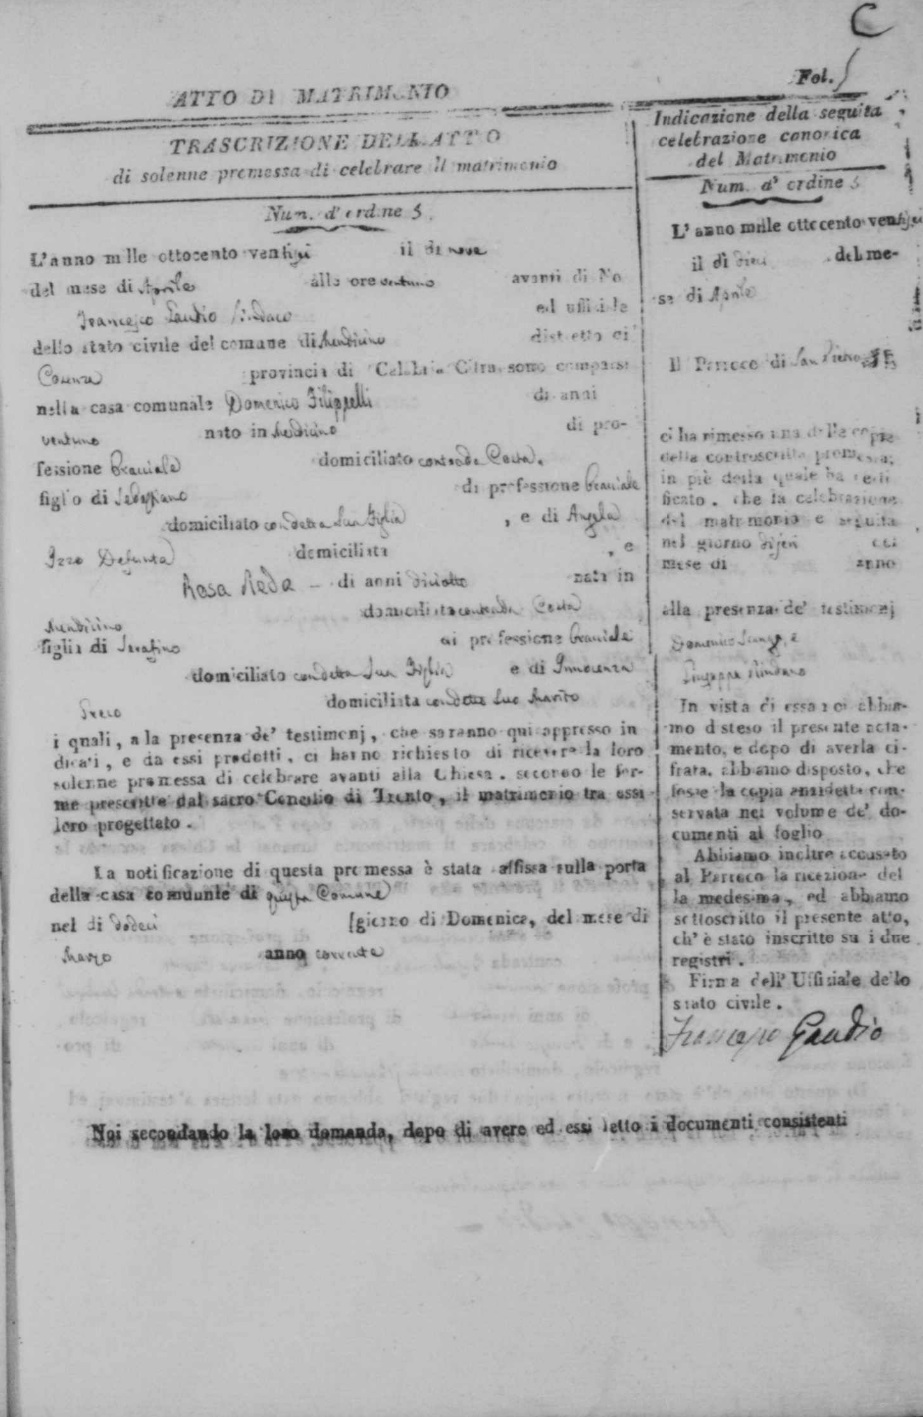 C
Fol. 5
ATTO DI MATRIMONIO
TRASCRIZIONE DELL'ATTO
di solenne promessa di celebrare il matrimonio
Num. d'ordine 5.
L'anno mille ottocento ventisei il dì nove
del mese di Aprile alle ore ventuno avanti di No
Francesco Gaudio Sindaco ed uffiziale
dello stato civile del comune di Mendicino distretto di
Cosenza provincia di Calabria Citra, sono comparsi
nella casa comunale Domenico Filippelli di anni
ventuno nato in Mendicino di pro-
fessione bracciale domiciliato contrada Costa,
figlio di di professione bracciale
domiciliato con detto Suo Figlio, e di Angela
Izzo Defunta domiciliata, e
Rosa Reda - di anni diciotto nata in
Mendicino domiciliata contrada Costa
figlia di Serafino di professione bracciale
domiciliato con detta Sua Figlia e di Innocenza
Greco domiciliata con detto Suo Marito
i quali, alla presenza de' testimonj, che saranno qui appresso in
dicati, e da essi prodotti, ci hanno richiesto di ricevere la loro
solenne promessa di celebrare avanti alla Chiesa, secondo le for-
me prescritte dal sacro Concilio di Trento, il matrimonio tra essi
loro progettato.
La notificazione di questa promessa è stata affissa sulla porta
della casa comunale di questa Comune
nel dì dodeci [giorno di Domenica, del mese di
Marzo anno corrente
Noi secondando la loro domanda, dopo di avere ed essi letto i documenti consistenti
Indicazione della seguita
celebrazione canonica
del Matrimonio
Num. d'ordine 5
L'anno mille ottocento ventisei
il dì dieci del me-
se di Aprile
Il Parroco di San Pietro
ci ha rimesso una delle copie
della controscritta promessa,
in piè della quale ha certi
ficato, che la celebrazione
del matrimonio è seguita
nel giorno dieci del
mese di anno
alla presenza de' testimonj
Domenico e
Giuseppe
In vista di essa noi abbia-
mo disteso il presente nota-
mento, e dopo di averla ci-
frata, abbiamo disposto, che
fosse la copia anzidetta con-
servata nel volume de' do-
cumenti al foglio
Abbiamo inoltre accusato
al Parroco la ricezione del
la medesima, ed abbiamo
sottoscritto il presente atto,
ch'è stato inscritto su i due
registri.
Firma dell'Uffiziale dello
stato civile.
Francesco Gaudio